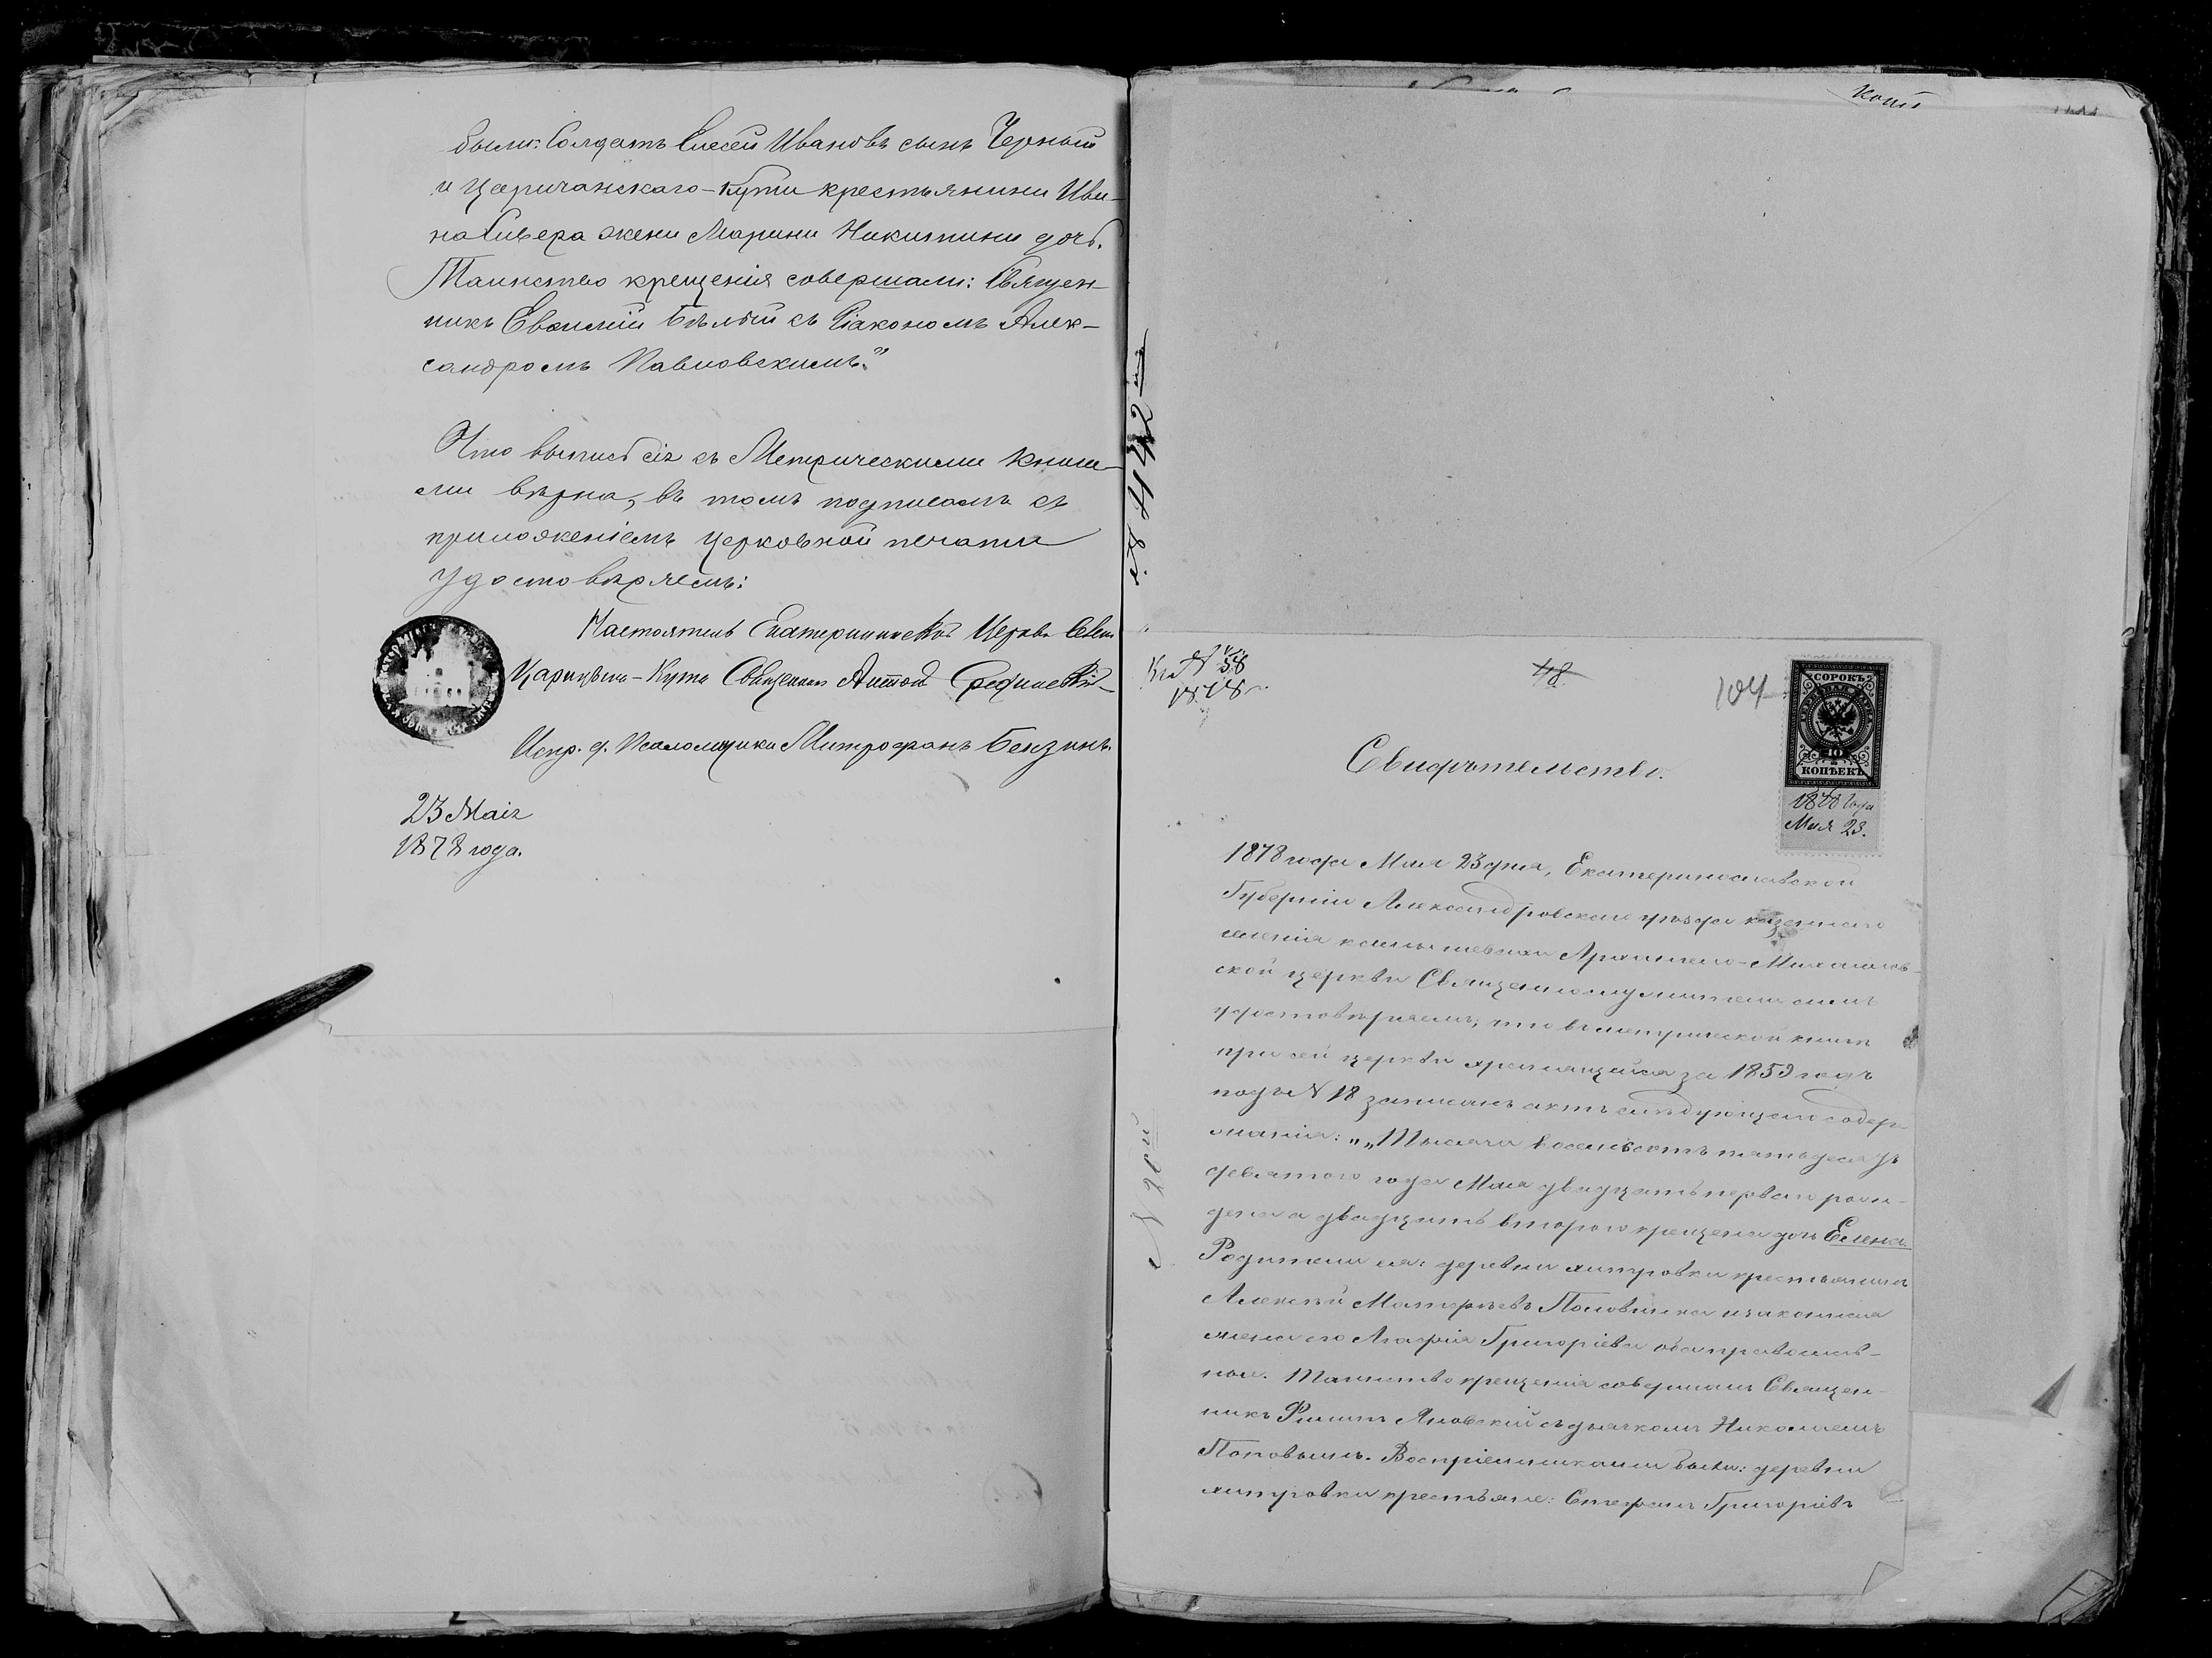 были: Солдатъ Елисей Ивановъ сынъ Черный
и Царичанскаго-Кута крестьянина Ива-
на Сивера жена Марина Никитина дочь.
Таинство крещенія совершали: Священ-
никъ Евфимій Бѣлый съ Діакономъ Алек-
сандромъ Павловскимъ."
Что выпись сія съ Метрическими книга-
ми вѣрна, въ томъ подписомъ съ
приложеніемъ церковной печати
удостовѣряемъ:
Настоятель Церкви
Царицына-Кута Священникъ
Испр. д. Псаломщика Митрофанъ
23 Маія
1878 года.
Копія
№ 442
№ 58
1878 г.
48
104
СОРОКЪ
40
КОПѢЕКЪ
1878 года
Мая 23.
Свидѣтельство.
1878 года Мая 23 дня, Екатеринославской
Губерніи Александровскаго уѣзда казеннаго
селенія Камышевахи Архангело-Михайлов-
ской церкви Священнослужители симъ
удостовѣряемъ, что въ метрической книгѣ
при сей церкви хранящейся за 1859 годъ
подъ № 18 записанъ актъ слѣдующаго содер-
жанія: „„Тысяча восемьсотъ пятьдесятъ
девятого года Мая двадцать первого рож-
дена а двадцать второго крещена дочь Елена.
Родители ея: деревни крестьянинъ
Алексѣй Матфѣевъ Половинка и законная
жена его Агафія Григоріева оба православ-
ные. Таинство крещенія совершалъ Священ-
никъ Филиппъ Яновскій съ дьячкомъ Николаемъ
Поповымъ. Воспріемниками были: деревни
крестьяне: Стефанъ Григоріевъ
№ 20й